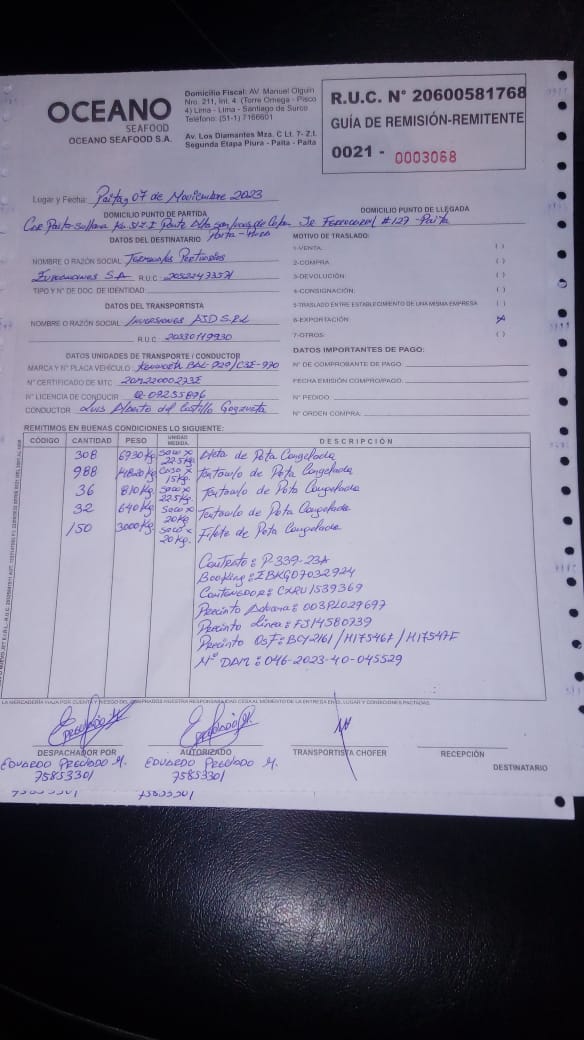 OCEANO
SEAFOOD
OCEANO SEAFOOD S.A.
Domicilio Fiscal: AV. Manuel Olguin
Nro. 211, Int. 4 (Torre Omega - Piso
4) Lima - Lima - Santiago de Surco
Teléfono: (51-1) 7166601
Av. Los Diamantes Mza. C Lt. 7- Z.I.
Segunda Etapa Piura - Paita - Paita
R.U.C. N° 20600581768
GUÍA DE REMISIÓN-REMITENTE
0021 - 0003068
Lugar y Fecha: Paita, 07 de Noviembre 2023
DOMICILIO PUNTO DE PARTIDA
DOMICILIO PUNTO DE LLEGADA
Car Paita Sullana Km Z I Parte Alta de Paita - Piura
Jr Ferrocarril #127 - Paita
DATOS DEL DESTINATARIO
NOMBRE O RAZÓN SOCIAL Terminales Portuarios
Euroandinos S.A R.U.C. 20522473571
TIPO Y N° DE DOC. DE IDENTIDAD:
DATOS DEL TRANSPORTISTA
NOMBRE O RAZÓN SOCIAL: Inversiones AJD S.R.L
R.U.C. 20530179930
DATOS UNIDADES DE TRANSPORTE / CONDUCTOR
MARCA Y N° PLACA VEHÍCULO: Kenworth
N° CERTIFICADO DE MTC
N° LICENCIA DE CONDUCIR
CONDUCTOR Luis Alberto del Castillo
MOTIVO DE TRASLADO:
1-VENTA: ( )
2-COMPRA ( )
3-DEVOLUCIÓN: ( )
4-CONSIGNACIÓN: ( )
5-TRASLADO ENTRE ESTABLECIMIENTO DE UNA MISMA EMPRESA ( )
6-EXPORTACIÓN: X
7-OTROS: ( )
DATOS IMPORTANTES DE PAGO:
N° DE COMPROBANTE DE PAGO:
FECHA EMISIÓN COMPROB/PAGO:
N° PEDIDO:
N° ORDEN COMPRA:
REMITIMOS EN BUENAS CONDICIONES LO SIGUIENTE:
CÓDIGO CANTIDAD PESO UNIDAD MEDIDA DESCRIPCIÓN
308 6930 Kg Saco x 22.5 Kg Aleta de Pota Congelada
988 14820 Kg Caja x 15 Kg Tentáculo de Pota Congelada
36 810 Kg Saco x 22.5 Kg. Tentáculo de Pota Congelada
32 640 Kg Saco x 20 Kg Tentáculo de Pota Congelada
150 3000 Kg Saco x 20 Kg. Filete de Pota Congelada
Contrato: P-339-23A
Booking: IBKG07032924
Contenedor: CXRU1539369
Precinto Aduana: 003PL029697
Precinto Línea: FJ14580739
Precinto OSF: BCY2161 / H17546F / H17547F
N° DAM: 046-2023-40-045529
LA MERCADERÍA VIAJA POR CUENTA Y RIESGO DEL COMPRADOR NUESTRA RESPONSABILIDAD CESA AL MOMENTO DE LA ENTREGA EN EL LUGAR Y CONDICIONES PACTADAS.
DESPACHADOR POR
AUTORIZADO
TRANSPORTISTA CHOFER
RECEPCIÓN
DESTINATARIO
Eduardo Preciado M.
75853301
Eduardo Preciado M.
75853301